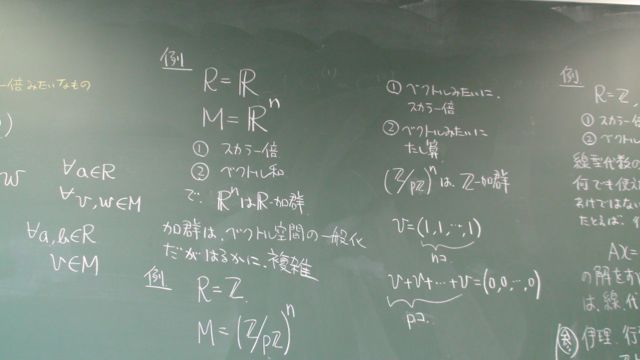 ー倍みたいなもの
)
w
∀a∈R
∀v,w∈M
∀a,b∈R
v∈M
例
R=ℝ
M=ℝⁿ
① スカラー倍
② ベクトル和
で、ℝⁿはℝ-加群
加群は、ベクトル空間の一般化
だがはるかに、複雑
例
R=ℤ
M=(ℤ/pℤ)ⁿ
① ベクトルみたいに、
スカラー倍
② ベクトルみたいに
たし算
(ℤ/pℤ)ⁿは、ℤ-加群
v=(1,1,…,1)
nコ
v+v+…+v=(0,0,…,0)
pコ
例
R=ℤ
① スカラ
② ベクト
線型代数の
何でも使え
わけではない
たとえば、
AX=
の解を
は、線、代
参 伊理、行